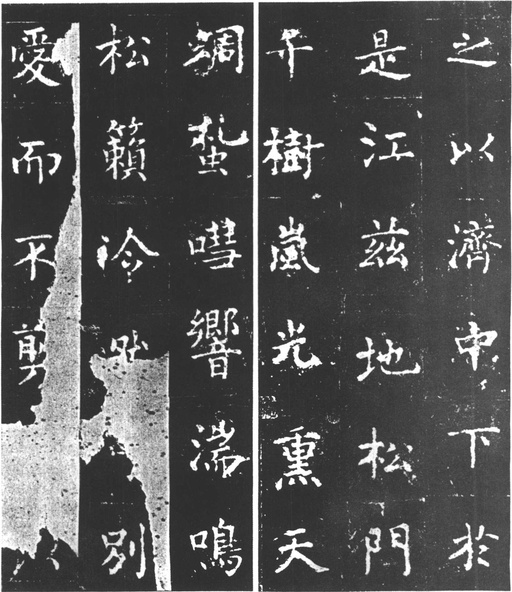 之以濟中下於
是江茲地松門
千樹嵐光熏天
蜩蚻嘒響湍鳴
松籟泠別
愛而不剪